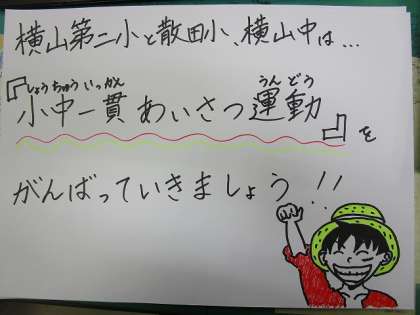 横山第二小と散田小、横山中は…
しょうちゅういっかん うんどう
『小中一貫 あいさつ運動』を
がんばっていきましょう!!